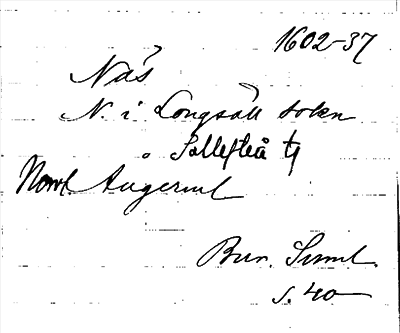 1602-37
Näs
N. i Långsåll sokn
o Sollefteå tg
Norrl Ångerml
Bur. Suml.
s. 40